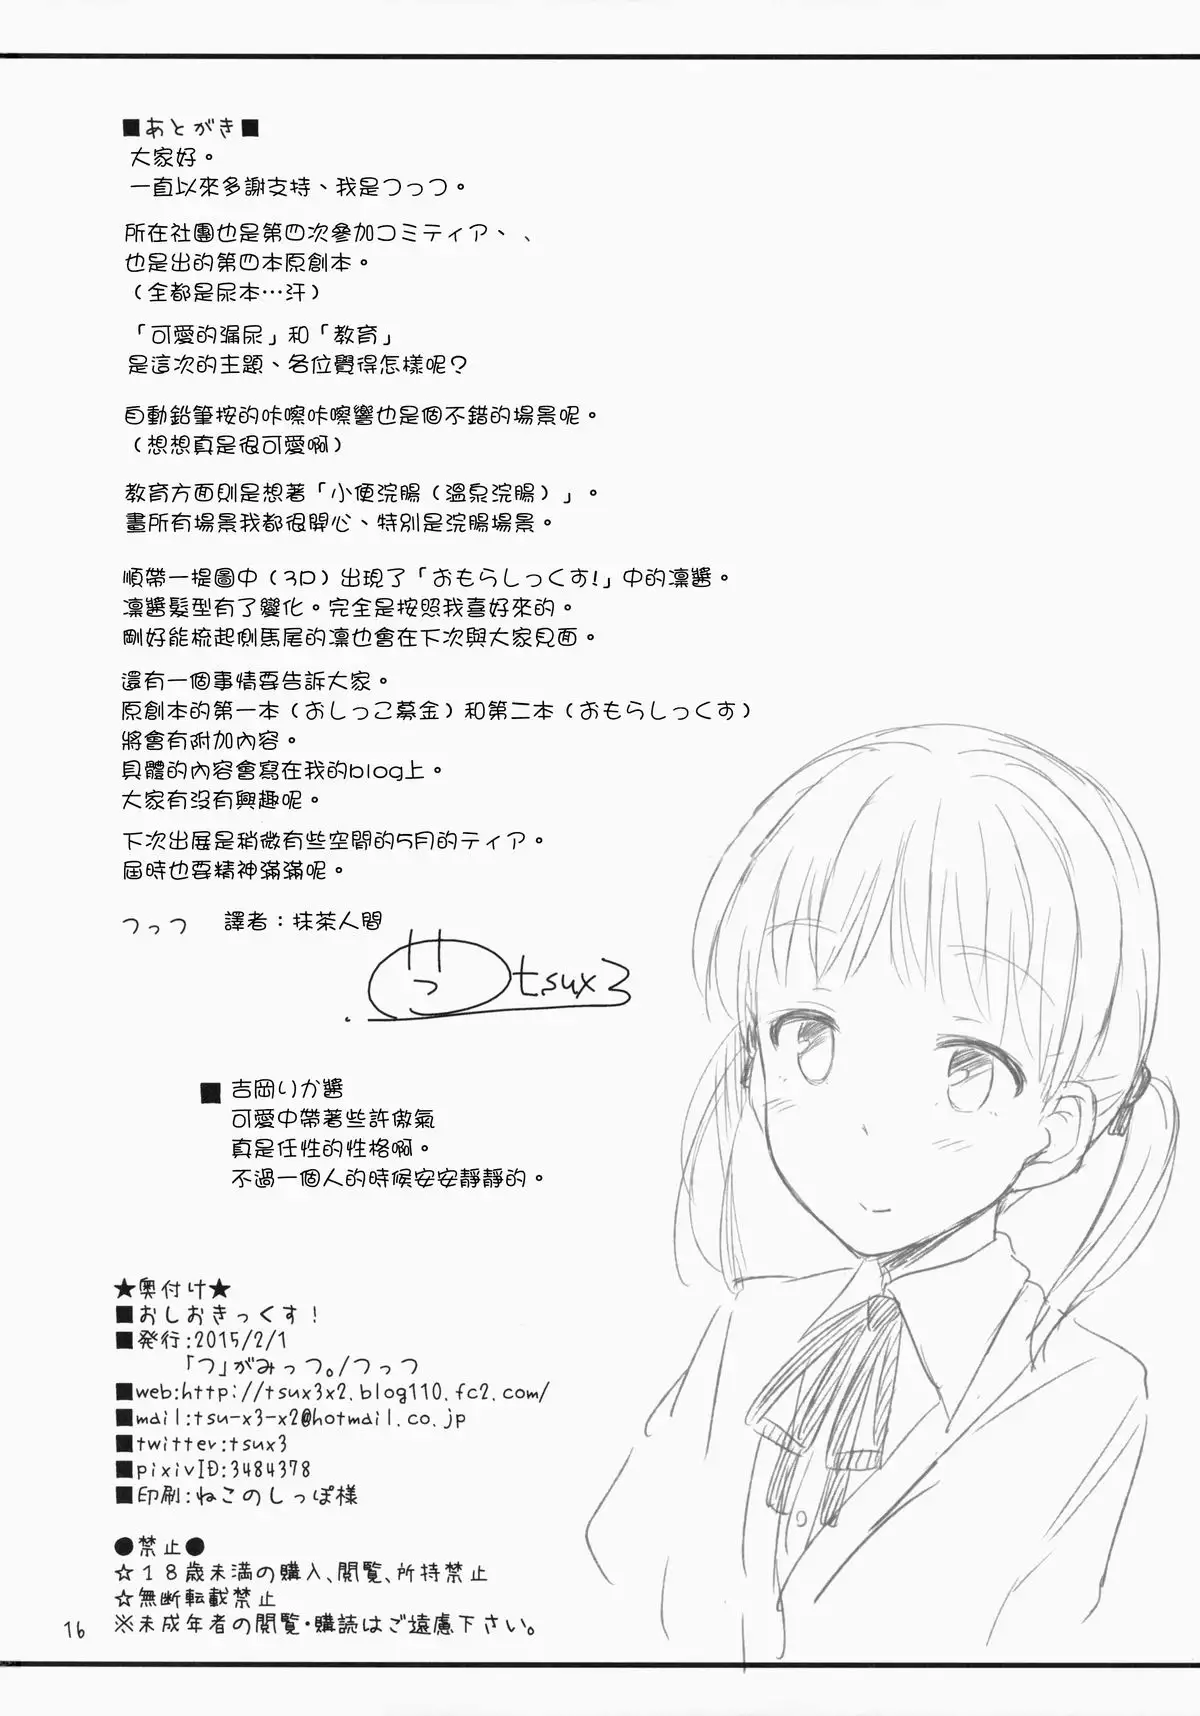 ■あとがき■
大家好。
一直以來多謝支持、我是つっつ。
所在社團也是第四次參加コミティア、、
也是出的第四本原創本。
（全都是尿本…汗）
「可愛的漏尿」和「教育」
是這次的主題、各位覺得怎樣呢？
自動鉛筆按的咔嚓咔嚓響也是個不錯的場景呢。
（想想真是很可愛啊）
教育方面則是想著「小便浣腸（溫泉浣腸）」。
畫所有場景我都很開心、特別是浣腸場景。
順帶一提圖中（3P）出現了「おもらしっくす!」中的凛醬。
凛醬髮型有了變化。完全是按照我喜好來的。
剛好能梳起側馬尾的凛也會在下次與大家見面。
還有一個事情要告訴大家。
原創本的第一本（おしっこ募金）和第二本（おもらしっくす）
將會有附加內容。
具體的內容會寫在我的blog上。
大家有沒有興趣呢。
下次出展是稍微有些空間的5月的ティア。
屆時也要精神滿滿呢。
つっつ　譯者：抹茶人間
っ tsux3
■吉岡りか醬
可愛中帶著些許傲氣
真是任性的性格啊。
不過一個人的時候安安靜靜的。
★奥付け★
■おしおきっくす！
■発行:2015/2/1
「つ」がみっつ。/つっつ
■web:http://tsux3x2.blog110.fc2.com/
■mail:tsu-x3-x2@hotmail.co.jp
■twitter:tsux3
■pixivID:3484378
■印刷:ねこのしっぽ様
●禁止●
☆18歳未満の購入、閲覧、所持禁止
☆無断転載禁止
※未成年者の閲覧・購読はご遠慮下さい。
16